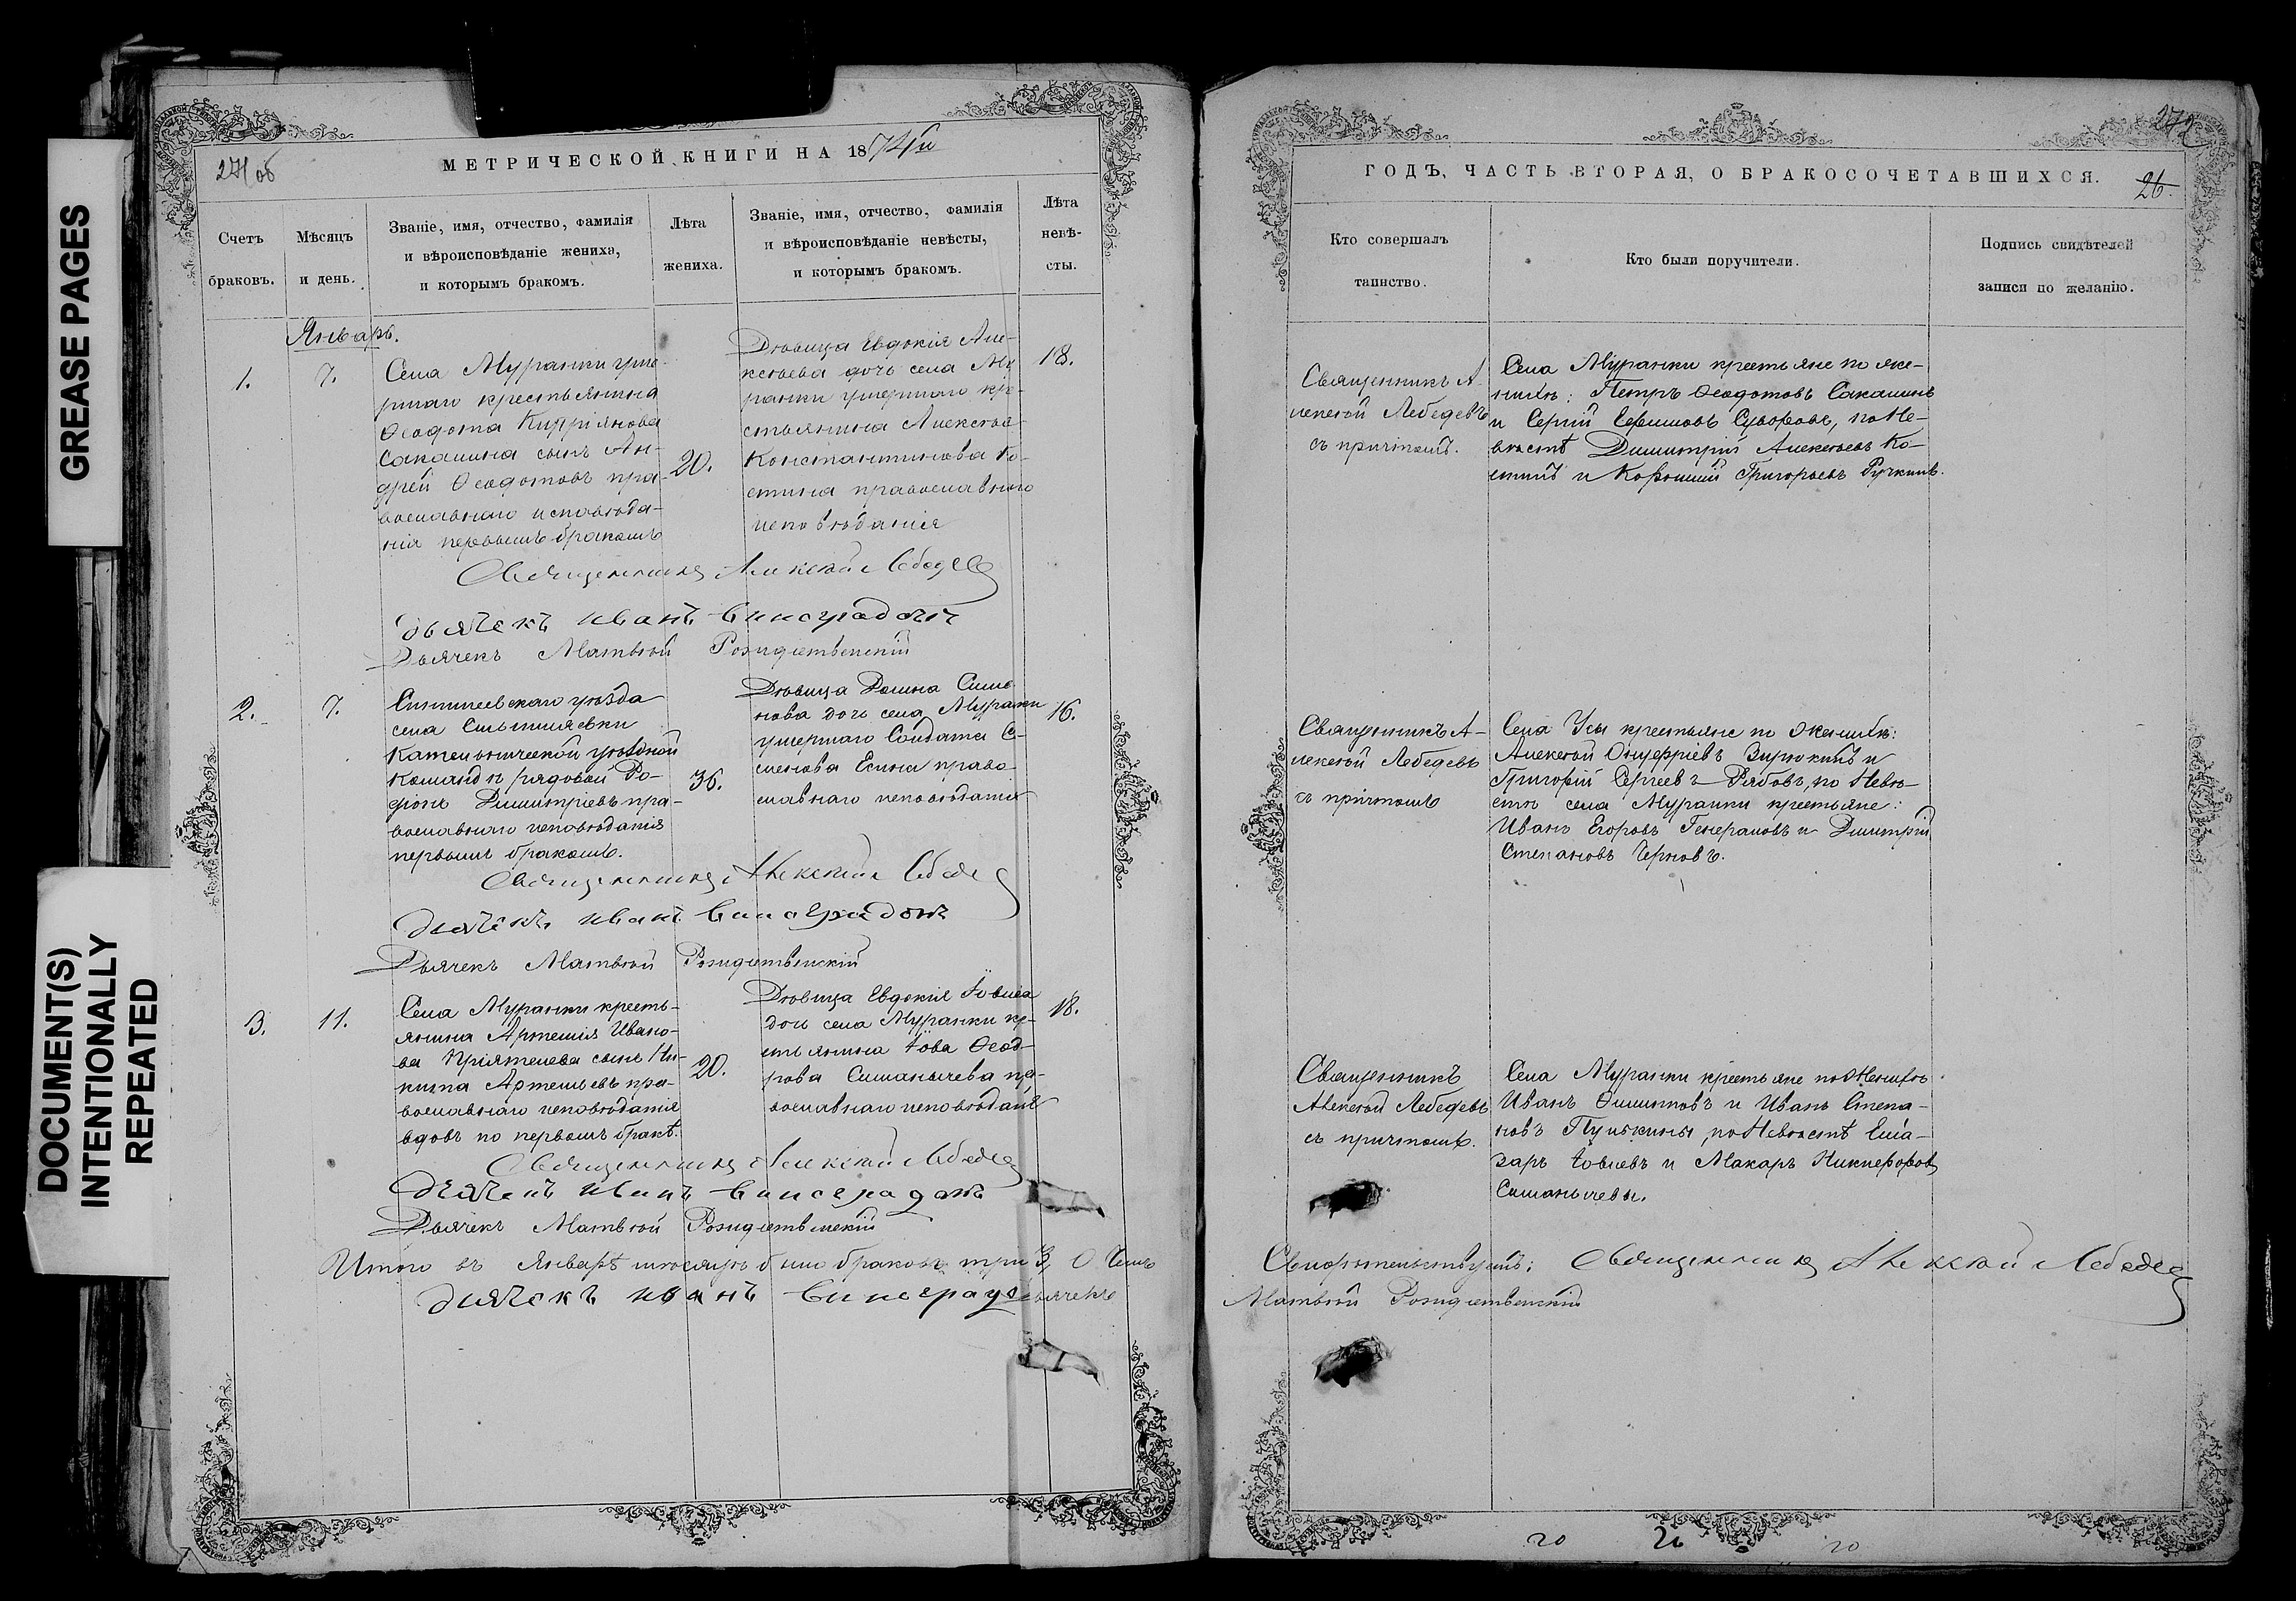 GREASE PAGES
DOCUMENT(S)
INTENTIONALLY
REPEATED
271 об
МЕТРИЧЕСКОЙ КНИГИ НА 1874й
Счетъ
браковъ.
Мѣсяцъ
и день.
Званіе, имя, отчество, фамилія
и вѣроисповѣданіе жениха,
и которымъ бракомъ.
Лѣта
жениха.
Званіе, имя, отчество, фамилія
и вѣроисповѣданіе невѣсты,
и которымъ бракомъ.
Лѣта
невѣ-
сты.
Январь.
1.
7.
Села Муранки уме-
ршаго крестьянина
Ѳеодота Кипріянова
Сакалина сынъ Ан-
дрей Ѳеодотовъ пра-
вославнаго исповѣда-
нія первымъ бракомъ
20.
Дѣвица Евдокія Але-
ксѣева дочь села Му
ранки умершаго кре-
стьянина Алексѣя
Константинова Ко-
стина православнаго
исповѣданія
18.
Священникъ Алексѣй Лебедев
дьячекъ иванъ виноградовъ
Дьячекъ Матвѣй Рождественскій
2.
7.
уѣзда
села
уѣздной
командѣ рядовой Ро-
діонъ Димитріевъ пра-
вославнаго исповѣданія
первымъ бракомъ.
36.
Дѣвица Домна Симе
нова дочь села Муранки
умершаго Солдата Се-
менова Есина право-
славнаго исповѣданія
16.
Священникъ Алексѣй Лебедев
дьячекъ иванъ виноградовъ
Дьячекъ Матвѣй Рождественскій
3.
11.
Села Муранки кресть-
янина Артемія Ивано-
ва Пріятелева сынъ Ни-
кита Артемьевъ пра-
вославнаго исповѣданія
вдовъ по первомъ бракѣ.
20.
Дѣвица Евдокія Іовлева
дочь села Муранки кр-
стьянина Іова Ѳеод-
рова Симанычева пр-
вославнаго исповѣданія
18.
Священникъ Алексѣй Лебедев
дьячекъ иванъ виноградовъ
Дьячекъ Матвѣй Рождественскій
Итого въ Январѣ мѣсяцѣ было браковъ три 3, О чемъ
дьячекъ иванъ виноградо дьячекъ
272
ГОДЪ, ЧАСТЬ ВТОРАЯ, О БРАКОСОЧЕТАВШИХСЯ.
26
Кто совершалъ
таинство.
Кто были поручители.
Подпись свидѣтелей
записи по желанію.
Священникъ А-
лексѣй Лебедевъ
съ причтомъ.
Села Муранки крестьяне по же-
нихѣ: Петръ Ѳеодотовъ Сакалинъ
и Сергій Ефимовъ Суворовъ, по Не-
вѣстѣ Димитрій Алексѣевъ Ко-
стинъ и Корнилій Григорьевъ Ручкинъ.
Священникъ А-
лексѣй Лебедевъ
съ причтомъ
Села Усы крестьяне по Женихѣ:
Алексѣй Онуфріевъ Зирюкинъ и
Григорій Сергеевъ Рябовъ, по Невѣ-
стѣ села Муранки крестьяне:
Иванъ Егоровъ Генераловъ и Димитрій
Степановъ Черновъ.
Священникъ
Алексѣй Лебедевъ
съ причтомъ.
Села Муранки крестьяне по Женихѣ
Иванъ Филиповъ и Иванъ Степа-
новъ Пулькины, по Невѣстѣ Елиа-
заръ Іовлевъ и Макаръ Никифоровъ
Симанычевы.
Свидѣтельствуемъ: Священникъ Алексѣй Лебедев
Матвѣй Рождественскій
20
26
20